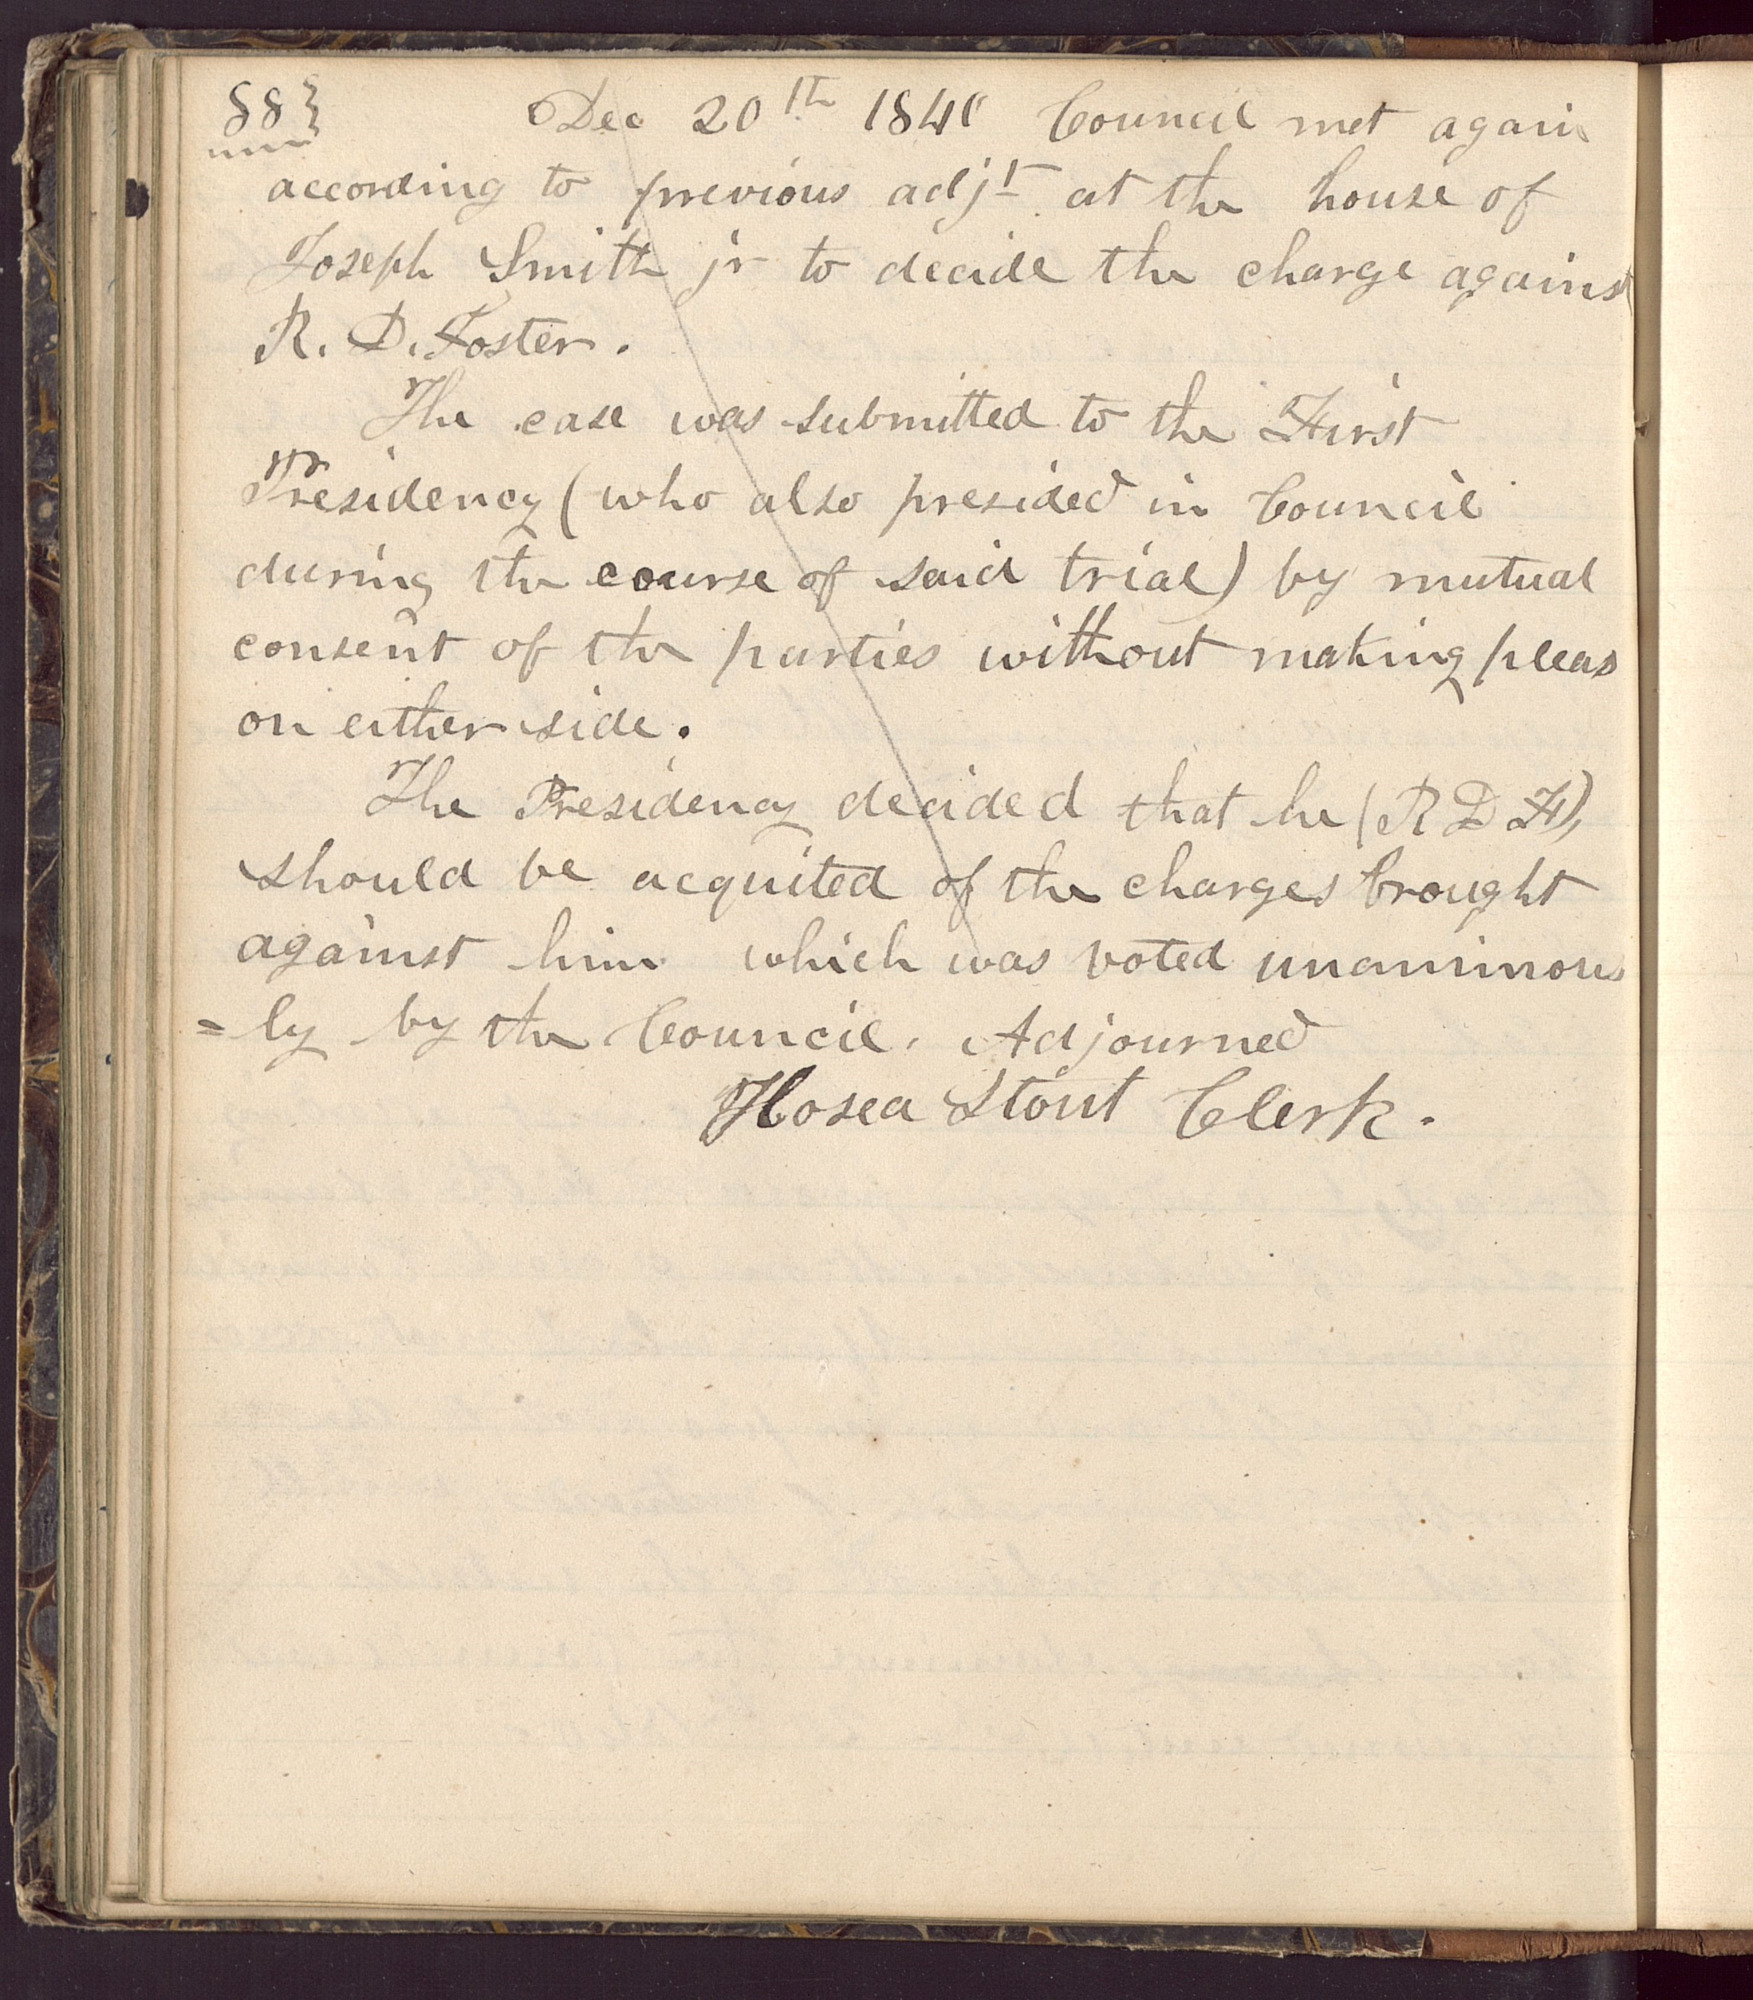 88}
Dec 20th 1840 Council met again
according to previous adjt at the house of
Joseph Smith jr to decide the charge against
R. D. Foster.
The case was submitted to the First
Presidency (who also presided in Council
during the course of said trial) by mutual
consent of the parties without making pleas
on either side.
The Presidency decided that he (R D F),
should be acquited of the charges brought
against him which was voted unanimous
=ly by the Council. Adjourned
Hosea Stout Clerk.